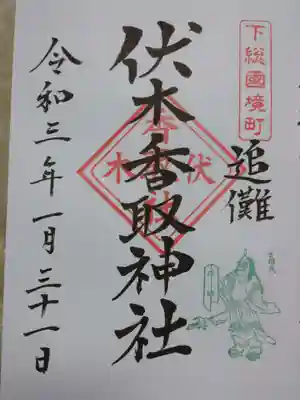 下総國境町
追儺
伏木香取神社
令和三年一月三十一日